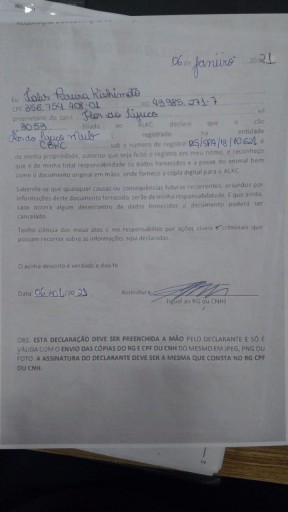 06 de janeiro 2021
Eu Lais Laura Kishimoto
CPF 356.754.708-01 RG 43.985.271-7
proprietário do canil Flor do Lipuco
3053 filiado ao ALAC declara que o cão
registrado na entidade
CBKC sob o número de registro
de minha propriedade, autorizo que seja feito o registro em meu nome, e reconheço
que é de minha total responsabilidade os dados fornecidos e a posse do animal bem
como o documento original em mãos, onde forneço a cópia digital para o ALAC
Sabendo-se que quaisquer causas ou consequências futuras recorrentes, oriundos por
informações deste documento fornecido, serão de minha responsabilidade. E que ainda,
caso ocorra algum desencontro de dados fornecidos o documento poderá ser
cancelado.
Tenho ciência dos meus atos e me responsabilizo por ações cíveis e criminais que
possam recorrer sobre as informações aqui declaradas.
O acima descrito é verdade e dou fé
Data: 06/01/2021 Assinatura
(igual ao RG ou CNH)
OBS. ESTA DECLARAÇÃO DEVE SER PREENCHIDA A MÃO PELO DECLARANTE E SÓ É
VÁLIDA COM O ENVIO DAS CÓPIAS DO RG E CPF OU CNH DO MESMO EM JPEG, PNG OU
FOTO. A ASSINATURA DO DECLARANTE DEVE SER A MESMA QUE CONSTA NO RG CPF
OU CNH.